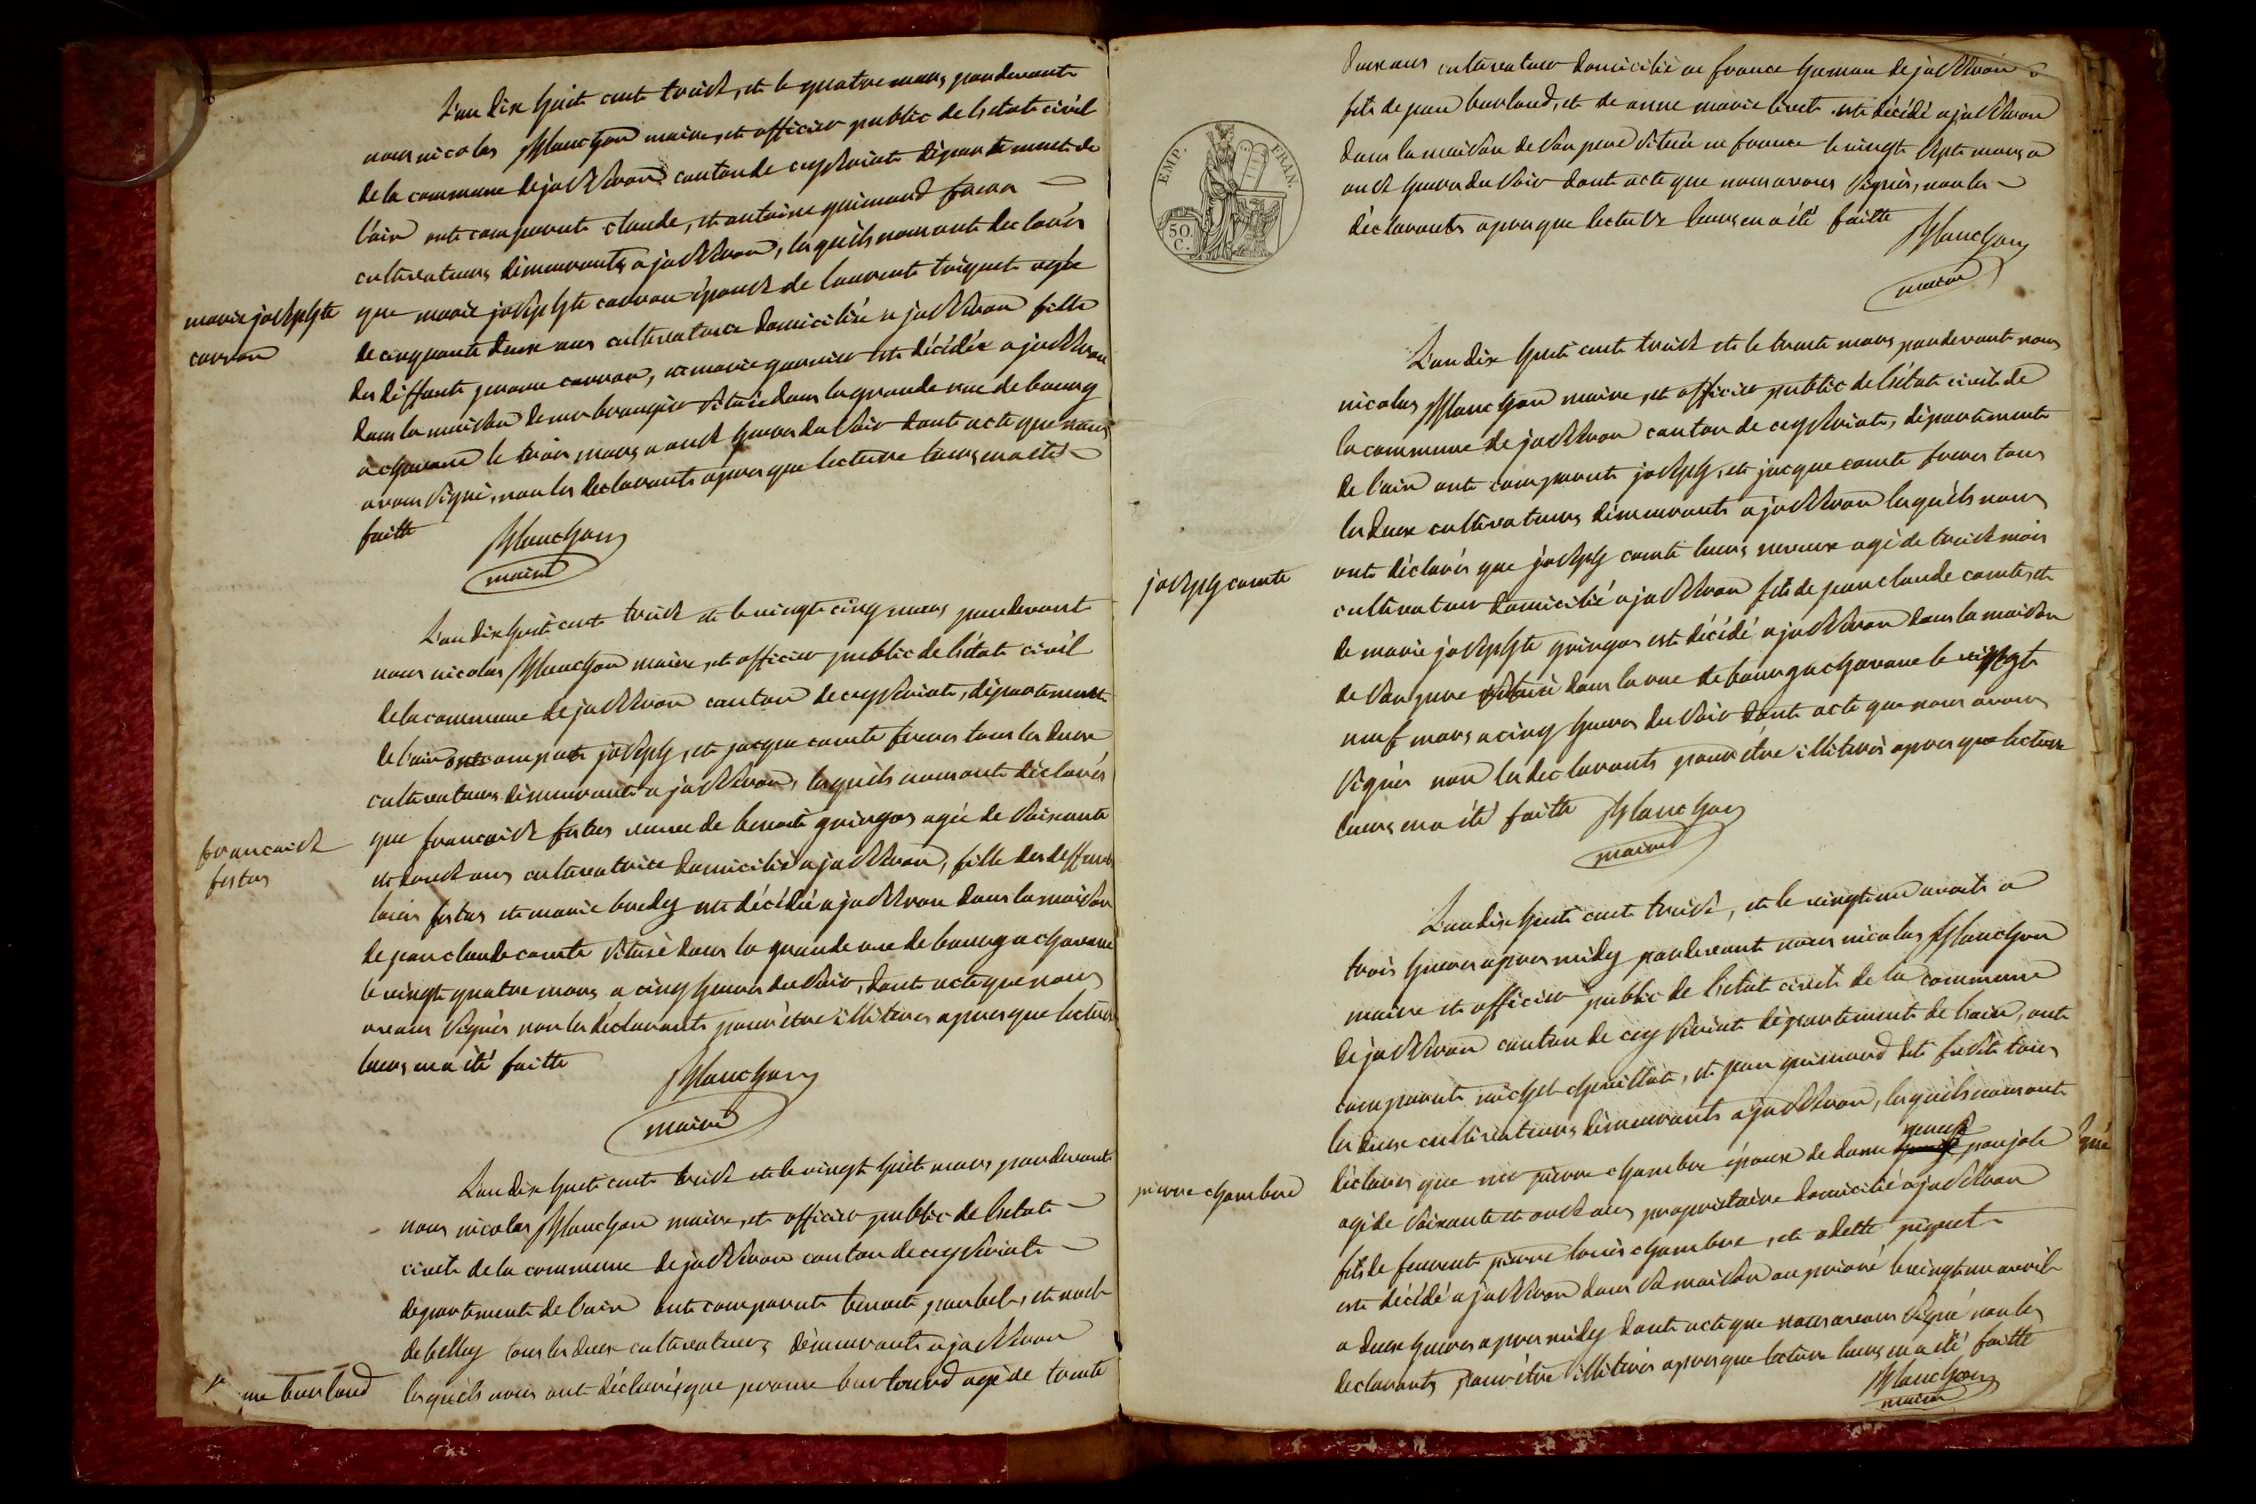 L'an dix huit cent treize, et le quatre mars, pardevant
nous nicolas Planchon maire, et officier public de l'état civil
de la commune de jasseron canton de ceyseriat département de
l'ain ont comparut claude, et antoine guimand freres
cultivateurs demeurants a jasseron, lesquels nous ont declarés
marie josephte
carron
que marie josephte carron épouse de laurent toiquet agée
de cinquante deux ans cultivatrice domiciliée a jasseron fille
des deffunts carron, et marie garnier est décédée a jasseron
dans la maison de située dans la grande rue de bourg
a chavane le trois mars a onze heures du soir dont acte que nous
avons signé, non les declarants apres que lecture leurs en a été
faitte
Planchon
maire
L'an dix huit cent treize et le vingt cinq mars pardevant
nous nicolas Planchon maire, et officier public de l'état civil
de la commune de jasseron canton de ceyseriat, département
de l'ain ont comparut joseph, et jacque comte freres tous les deux
cultivateurs demeurants a jasseron, lesquels nous ont déclarés
francaise
festas
que francaise festas veuve de benoit gringos agée de soixante
et douze ans cultivatrice domicilié a jasseron, fille des deffunts
louis festas et marie est décédé a jasseron dans la maison
de jean claude comte situé dans la grande rue de bourg a chavane
le vingt quatre mars a cinq heures du soir, dont acte que nous
avons signés non les déclarants pour être illiteres apres que lecture
leurs en a été faitte
Planchon
maire
L'an dix huit cent treize et le vingt huit mars pardevant
nous nicolas Planchon maire, et officier public de l'etat
civil de la commune de jasseron canton de ceyseriat
departement de l'ain ont comparut benoit et
tous les deux cultivateurs démeurants a jasseron
burloud
lesquels nous ont déclarés que burloud agé de trente
deux ans cultivateur domicilié en france hameau de jasseron
fils de jean burloud, et de anne marie est décédé a jasseron
dans la maison de son pere située en france le vingt sept mars a
onze heures du soir dont acte que nous avons signés, non les
déclarants apres que lecture leurs en a été faitte
Planchon
maire
EMP. FRAN.
50.
C.
L'an dix huit cent treize et le trente mars pardevant nous
nicolas Planchon maire, et officier public de l'état civil de
la commune de jasseron canton de ceyseriat, département
de l'ain ont comparut joseph, et jacque comte freres tous
les deux cultivateurs démeurants a jasseron lesquels nous
joseph comte
ont déclarés que joseph comte leurs neveux agé de treize mois
cultivateur domicilié a jasseron fils de jean claude comte, et
de marie josephte gringos est décédé a jasseron dans la maison
de son pere situé dans la rue de bourg a chavane le vingt
neuf mars a cinq heures du soir dont acte que nous avons
signés non les declarants pour être illiterés apres que lecture
leurs en a été faitte Planchon
maire
L'an dix huit cent treize, et le vingt un avril a
trois heures apres midy pardevant nous nicolas Planchon
maire et officier public de l'état civil de la commune
de jasseron canton de ceyseriat département de l'ain, ont
comparut michel chevillat, et jean guimand dit tous
les deux cultivateurs démeurants a jasseron, lesquels nous ont
pierre chambre
déclarés que mr pierre chambre époux de dame poujole
agé de soixante et onze ans proprietaire domicilié a jasseron
fils de feuent pierre louis chambre, et odette piquet
est décédé a jasseron dans sa maison au prioré le vingt un avril
a deux heures apres midy dont acte que nous avons signé non les
declarants pour être illiterés apres que lecture leurs en a été faitte
Planchon
maire